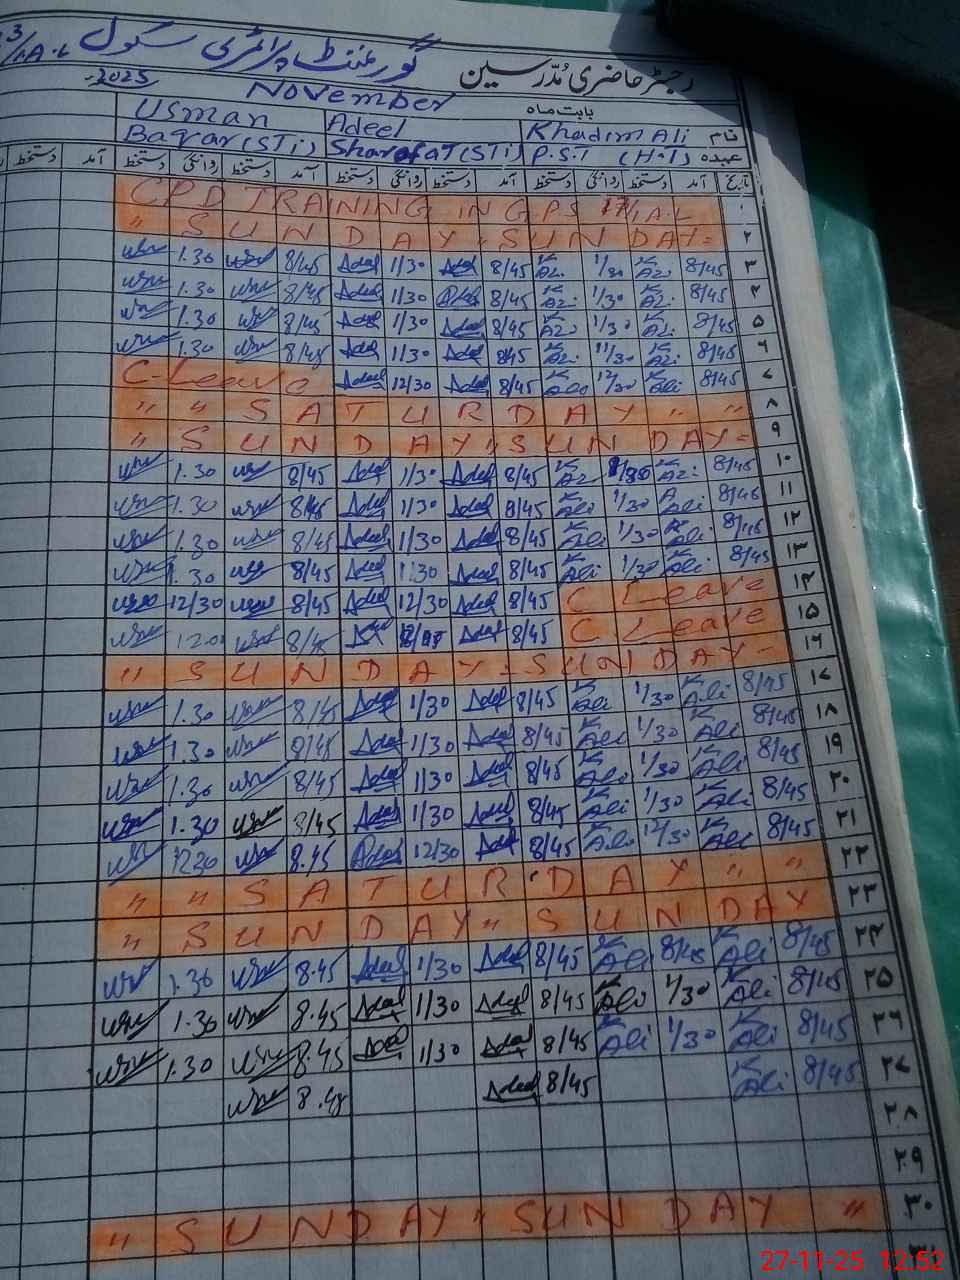 گورنمنٹ پرائمری سکول
رجسٹر حاضری مُدرسین
2025
November
بابت ماہ
Usman Adeel Khadim Ali نام
Baqar (STi) Sharafat (STi) P.S.T (H.T) عہدہ
دستخط آمد دستخط روانگی دستخط آمد دستخط روانگی دستخط آمد دستخط روانگی دستخط آمد تاریخ
CPD TRAINING IN GPS 17/1.A.L ۱
" SUNDAY " SUNDAY = ۲
1.30 8/45 Adeel 1/30 Adeel 8/45 K Ali 1/30 K Ali 8/45 ۳
1.30 8/45 Adeel 1/30 Adeel 8/45 K Ali 1/30 K Ali 8/45 ۴
1.30 8/45 Adeel 1/30 Adeel 8/45 K Ali 1/30 K Ali 8/45 ۵
1.30 8/45 Adeel 1/30 Adeel 8/45 K Ali 1/30 K Ali 8/45 ۶
C-Leave Adeel 12/30 Adeel 8/45 K Ali 12/30 K Ali 8/45 ۷
" " SATURDAY " " ۸
" SUNDAY " SUNDAY = ۹
1.30 8/45 Adeel 1/30 Adeel 8/45 K Ali K Ali 8/45 ۱۰
1.30 8/45 Adeel 1/30 Adeel 8/45 K Ali 1/30 Ali 8/45 ۱۱
1.30 8/45 Adeel 1/30 Adeel 8/45 K Ali 1/30 K Ali 8/45 ۱۲
1.30 8/45 Adeel 1:30 Adeel 8/45 K Ali 1/30 K Ali 8/45 ۱۳
12/30 8/45 Adeel 12/30 Adeel 8/45 C Leave ۱۴
8/45 Adeel 8/45 C Leave ۱۵
" SUNDAY " SUNDAY - ۱۶
1.30 8/45 Adeel 1/30 Adeel 8/45 K Ali 1/30 K Ali 8/45 ۱۷
1.30 8/45 Adeel 1/30 Adeel 8/45 K Ali 1/30 K Ali 8/45 ۱۸
1.30 8/45 Adeel 1/30 Adeel 8/45 K Ali 1/30 K Ali 8/45 ۱۹
1.30 8/45 Adeel 1/30 Adeel 8/45 K Ali 1/30 K Ali 8/45 ۲۰
12.30 8.45 Adeel 12/30 Adeel 8/45 K Ali 12/30 K Ali 8/45 ۲۱
" " SATURDAY " " ۲۲
" SUNDAY " SUNDAY ۲۳
1.30 8.45 Adeel 1/30 Adeel 8/45 K Ali 8/45 K Ali 8/45 ۲۴
1.30 8.45 Adeel 1/30 Adeel 8/45 K Ali 1/30 K Ali 8/45 ۲۵
1.30 8.45 Adeel 1/30 Adeel 8/45 K Ali 1/30 K Ali 8/45 ۲۶
8.45 Adeel 8/45 K Ali 8/45 ۲۷
۲۸
۲۹
" SUNDAY " SUNDAY " ۳۰
27-11-25 12:52